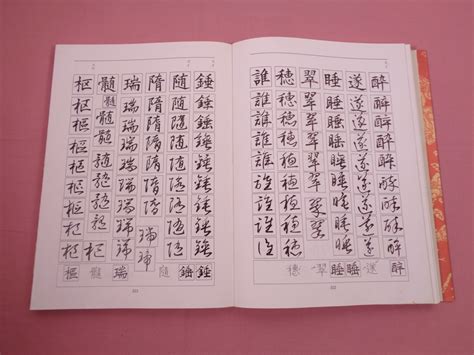 酔醉醉醉醉酔酔酔
遂遂遂遂遂遂遂遂
睡睡睡睡睡睡睡睡
翠翠翠翠翠翠翠翠
穂穂穂穂穂穂穂穂
誰誰誰誰誰誰誰誰
酔
遂
睡睡
翠
穂
錘錘錘錘錘錘錘錘
随随随随随随随随
隋隋隋隋隋隋
瑞瑞瑞瑞瑞瑞瑞瑞
髄髄髄髄髄髄髄
枢枢樞樞枢枢枢枢
錘錘
随
瑞
髄
樞